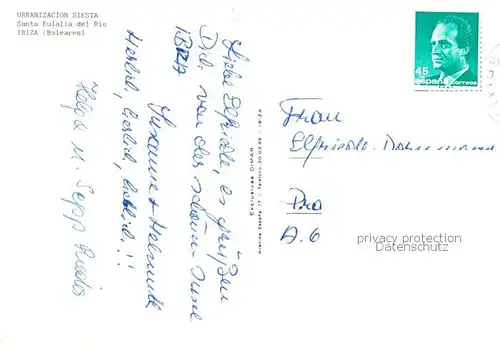 URBANIZACION SIESTA
Santa Eulalia del Rio
IBIZA (Baleares)
Liebe Elfriede, es grüßen
Dich von der schönen Insel
IBIZA
Susanne + Helmuth
Herbert,
Helga u. Sepp
Exclusivas DIMAR
Avenida España 17 - Teléfono 30 03 45 - IBIZA
45
ESPAÑA correos
Frau
Elfriede
A. 6
privacy protection
Datenschutz